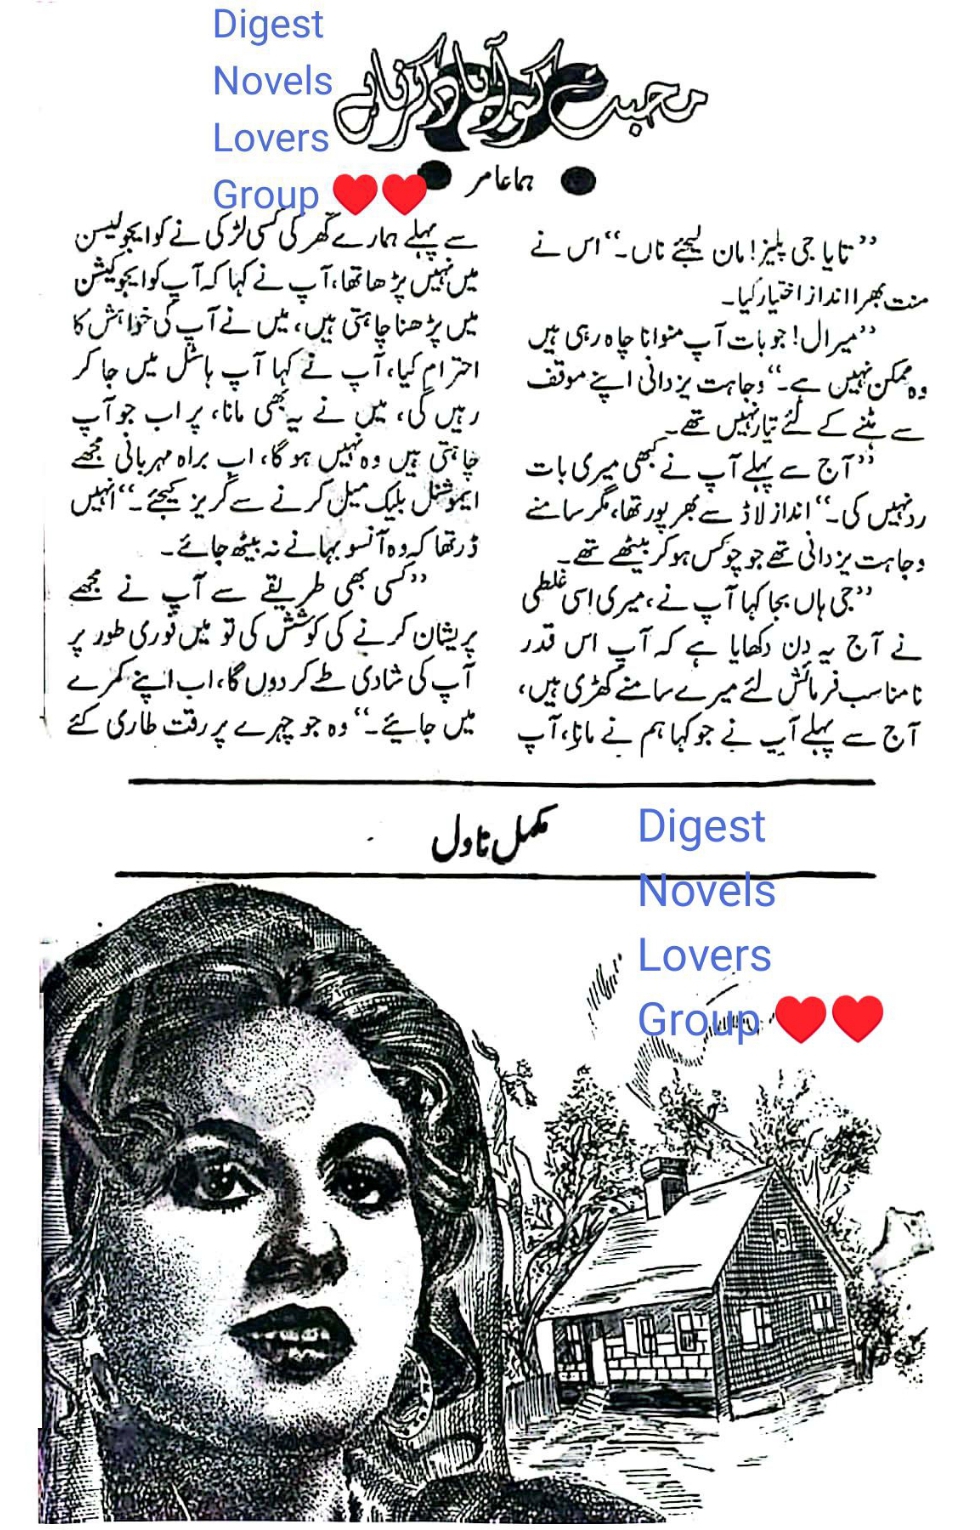 Digest
Novels
Lovers
Group ❤️❤️
محبت کو آباد کرنا ہے
ہما عامر
”تایا جی پلیز! مان لیجئے ناں۔“ اس نے
منت بھرا انداز اختیار کیا۔
”میرال! جو بات آپ منوانا چاہ رہی ہیں
وہ ممکن نہیں ہے۔“ وجاہت یزدانی اپنے موقف
سے ہٹنے کے لئے تیار نہیں تھے۔
”آج سے پہلے آپ نے کبھی میری بات
رد نہیں کی۔“ انداز لاڈ سے بھرپور تھا، مگر سامنے
وجاہت یزدانی تھے جو چوکس ہو کر بیٹھے تھے۔
”جی ہاں بجا کہا آپ نے، میری اسی غلطی
نے آج یہ دن دکھایا ہے کہ آپ اس قدر
نامناسب فرمائش لئے میرے سامنے کھڑی ہیں،
آج سے پہلے آپ نے جو کہا ہم نے مانا، آپ
سے پہلے ہمارے گھر کی کسی لڑکی نے کو ایجوکیشن
میں نہیں پڑھا تھا، آپ نے کہا کہ آپ کو ایجوکیشن
میں پڑھنا چاہتی ہیں، میں نے آپ کی خواہش کا
احترام کیا، آپ نے کہا آپ ہاسٹل میں جا کر
رہیں گی، میں نے یہ بھی مانا، پر اب جو آپ
چاہتی ہیں وہ نہیں ہو گا، اب براہ مہربانی مجھے
ایموشنل بلیک میل کرنے سے گریز کیجئے۔“ انہیں
ڈر تھا کہ وہ آنسو بہانے نہ بیٹھ جائے۔
”کسی بھی طریقے سے آپ نے مجھے
پریشان کرنے کی کوشش کی تو میں فوری طور پر
آپ کی شادی طے کر دوں گا، اب اپنے کمرے
میں جائیے۔“ وہ جو چہرے پر رقت طاری کئے
مکمل ناول
Digest
Novels
Lovers
Group ❤️❤️